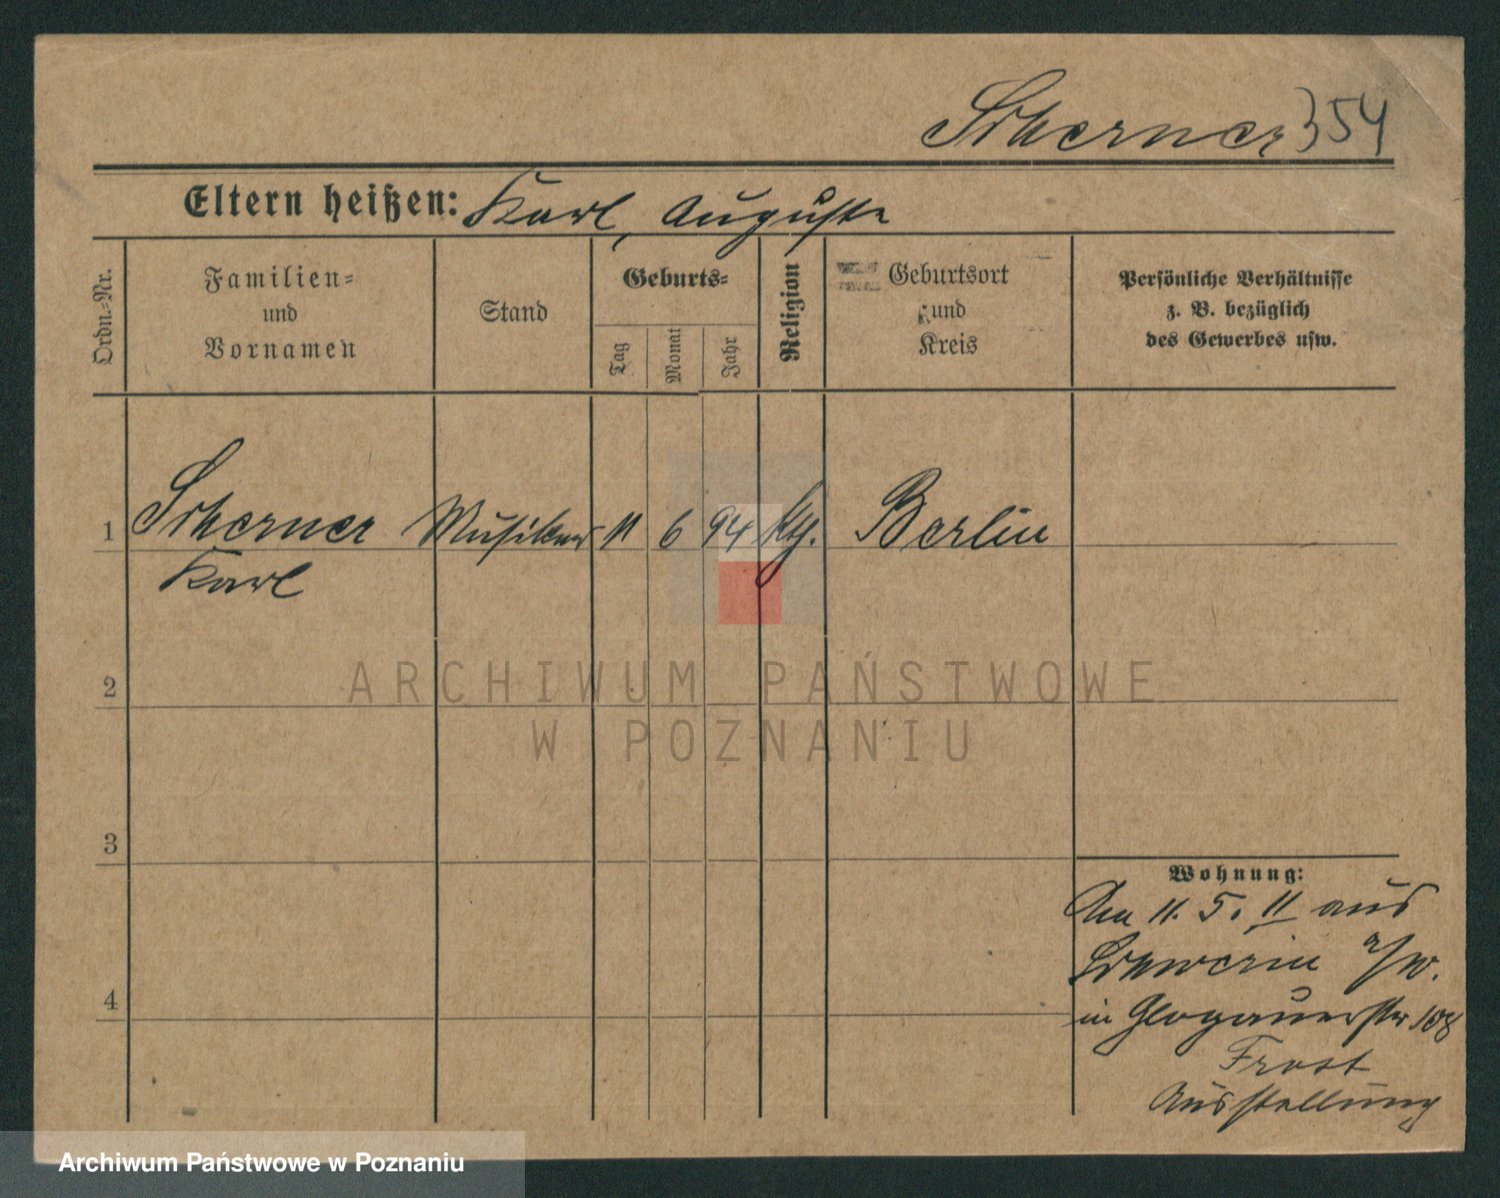 Scherner 354
Eltern heißen: Karl, Auguste
Ordn.-Nr.
Familien-
und
Vornamen
Stand
Geburts-
Tag
Monat
Jahr
Religion
Geburtsort
und
Kreis
Persönliche Verhältnisse
z. B. bezüglich
des Gewerbes usw.
1 Scherner Musiker 11 6 94 kth. Berlin
Karl
2
3
4
Wohnung:
Am 11. 5. 11 aus
Schwerin a/W.
in Glogauerstr 108
Frost
Ausstellung
ARCHIWUM PAŃSTWOWE
W POZNANIU
Archiwum Państwowe w Poznaniu